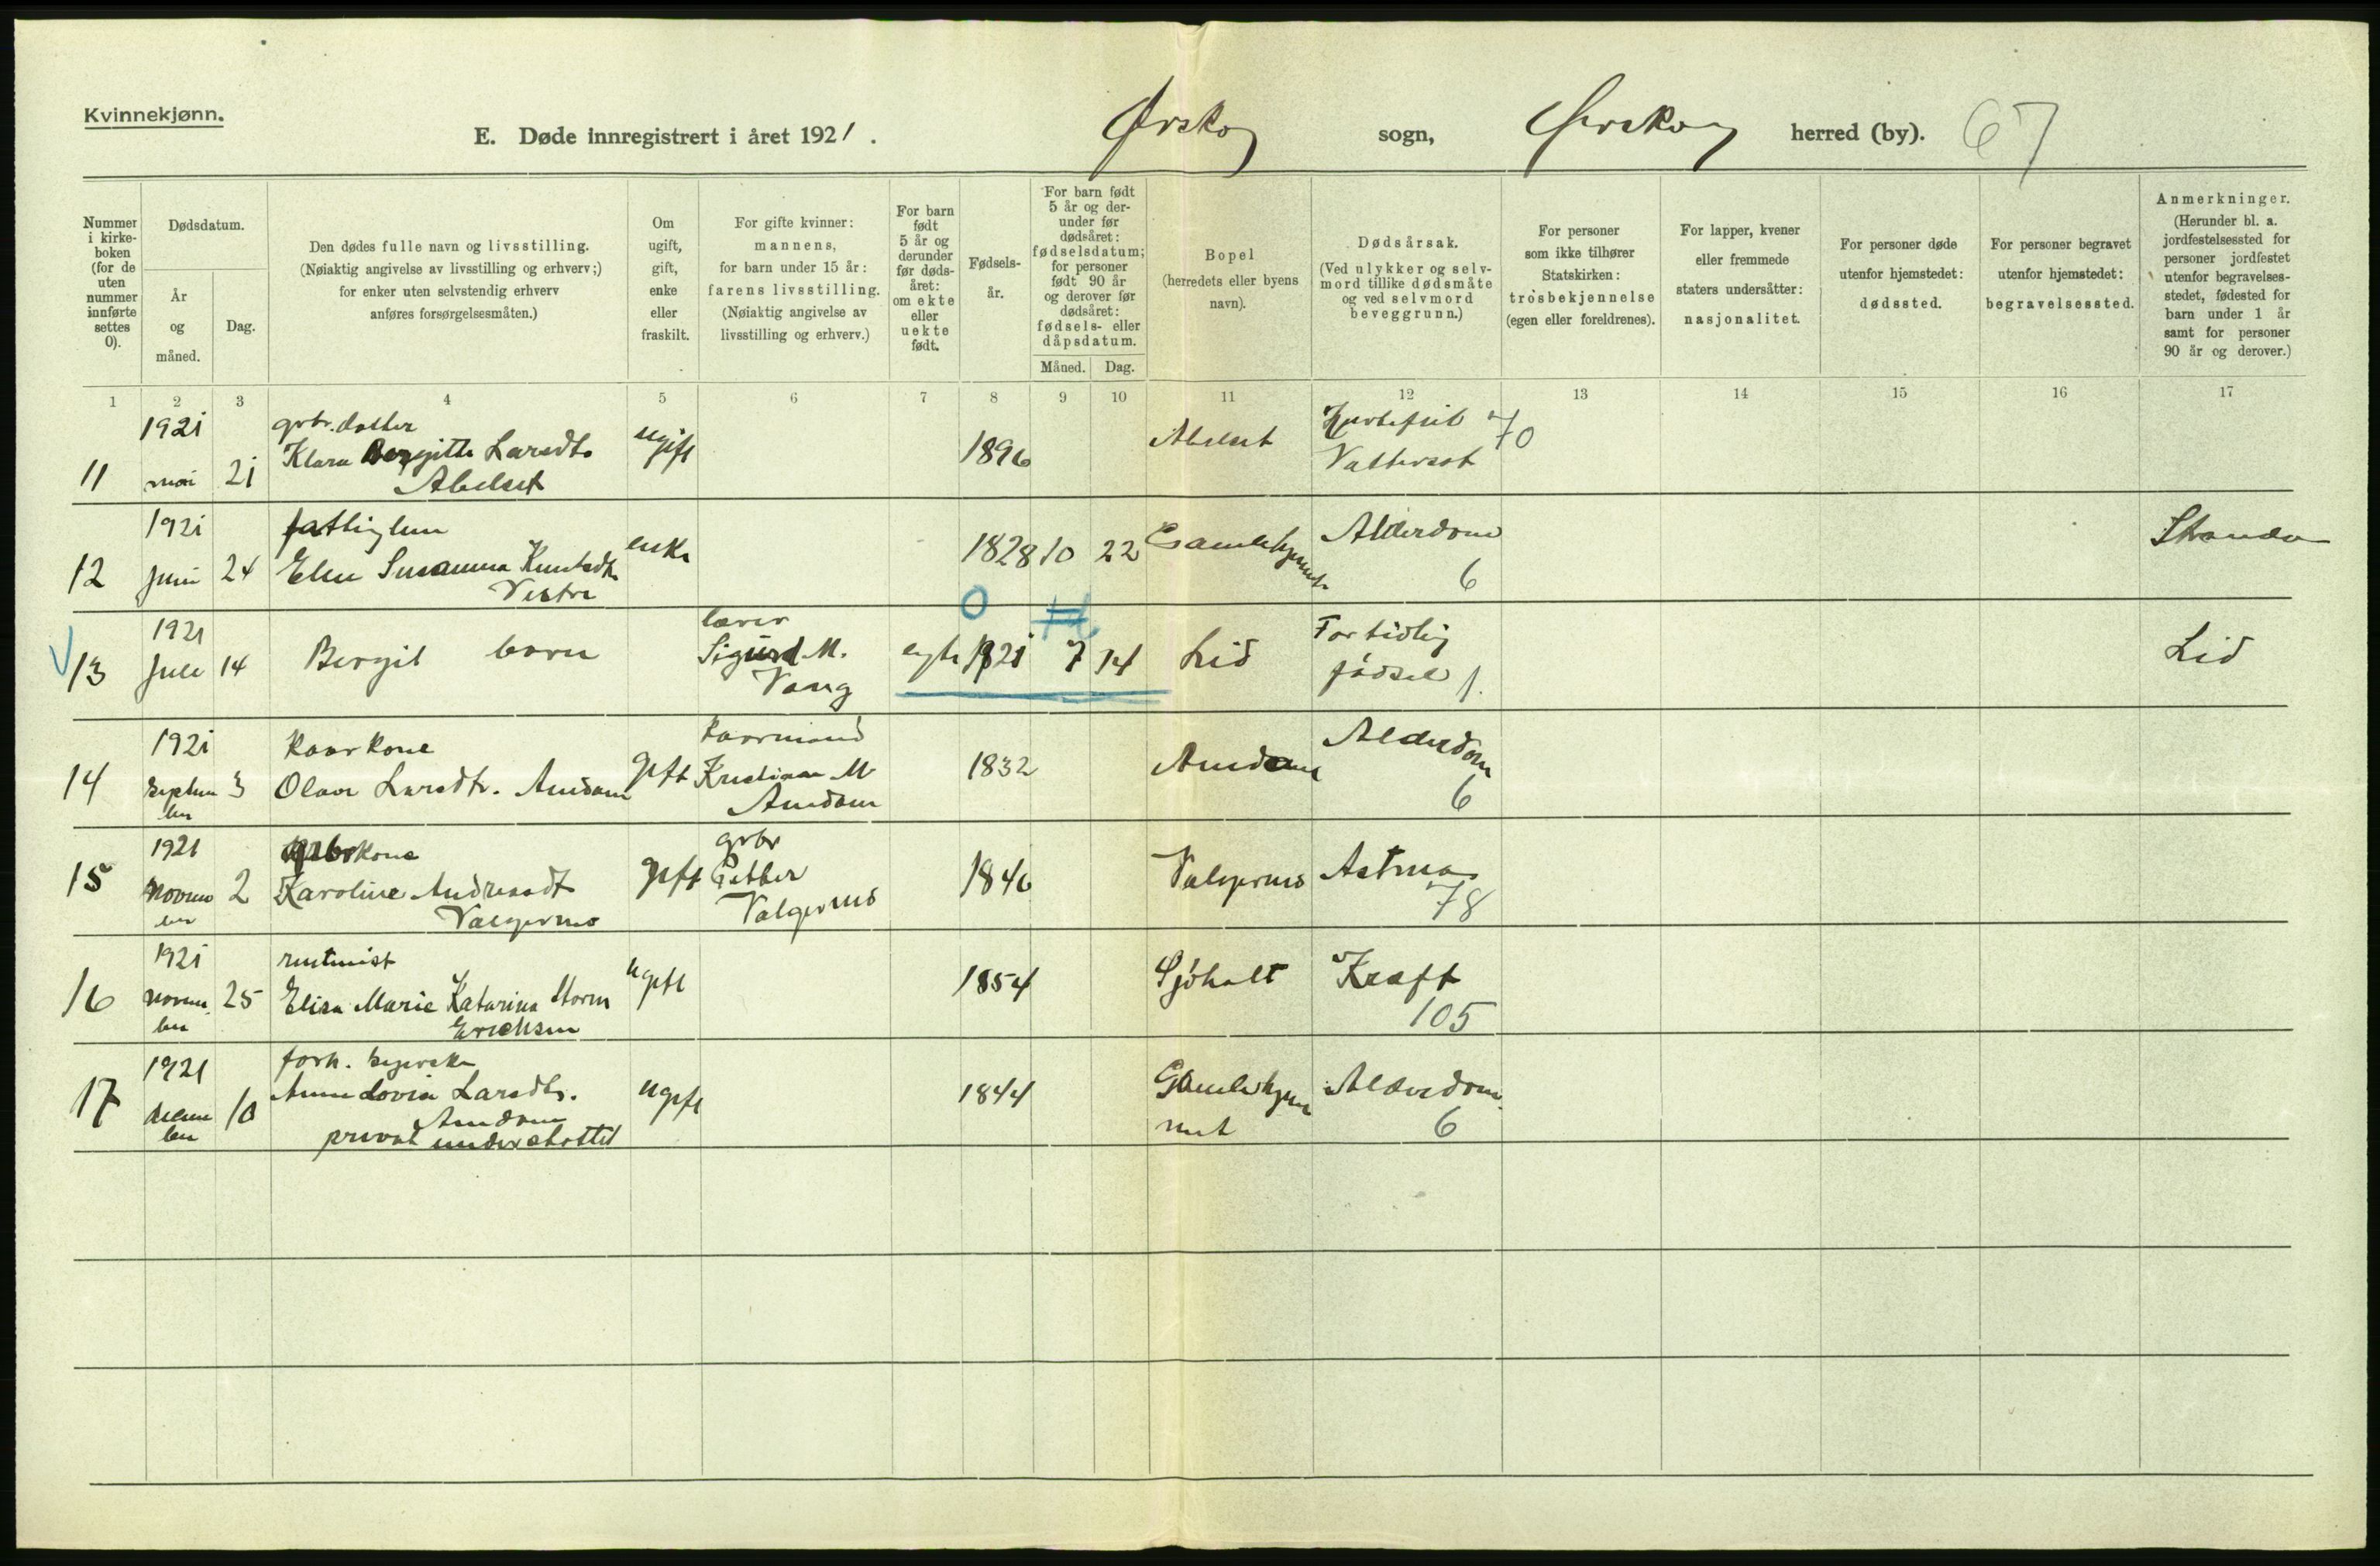 Kvinnekjønn.
E. Døde innregistrert i året 1921. Ørskog sogn, Ørskog herred (by). 67
Nummer i kirke-boken (for de uten nummer innførte settes 0).
Dødsdatum.
År og måned.
Dag.
Den dødes fulle navn og livsstilling.
(Nøiaktig angivelse av livsstilling og erhverv;)
for enker uten selvstendig erhverv
anføres forsørgelsesmåten.)
Om ugift, gift, enke eller fraskilt.
For gifte kvinner:
mannens,
for barn under 15 år:
farens livsstilling.
(Nøiaktig angivelse av
livsstilling og erhverv.)
For barn født 5 år og derunder før døds-året: om ekte eller uekte født.
Fødsels-år.
For barn født 5 år og der-under før dødsåret: fødselsdatum; for personer født 90 år og derover før dødsåret: fødsels- eller dåpsdatum.
Måned. Dag.
Bopel
(herredets eller byens
navn).
Dødsårsak.
(Ved ulykker og selv-
mord tillike dødsmåte
og ved selvmord
beveggrunn.)
For personer
som ikke tilhører
Statskirken:
trosbekjennelse
(egen eller foreldrenes).
For lapper, kvener
eller fremmede
staters undersåtter:
nasjonalitet.
For personer døde
utenfor hjemstedet:
dødssted.
For personer begravet
utenfor hjemstedet:
begravelsessted.
Anmerkninger.
(Herunder bl. a.
jordfestelsessted for
personer jordfestet
utenfor begravelses-
stedet, fødested for
barn under 1 år
samt for personer
90 år og derover.)
1 2 3 4 5 6 7 8 9 10 11 12 13 14 15 16 17
1921 grbr. datter
11 mai 21 Klara Bergitte Larsdtr ugift 1896 Abelset Hjertefeil 70
Abelset Vattersot
1921
12 juni 24 Elen Susanna Knutsdtr enke 1828 10 22 Gamlehjemet Alderdom 6 Stranda
Vestre
0
1921 lærer
13 Juli 14 Bergit barn Sigurd M. egte 1921 7 14 Lid For tidlig Lid
Vang fødsel 1.
1921 Kaarkone Kaarmand
14 September 3 Olave Larsdtr. Amdam gift Kristian M 1832 Amdam Alderdom
Amdam 6
1921 grbrkone grbr
15 November 2 Karoline Andreasdt gift Petter 1846 Valgermo Astma
Valgermo Valgermo 78
1921 rentenist
16 November 25 Elisa Marie Katarina Storm ugift 1854 Sjøholt Kræft
Erichsen 105
1921 forh. syerske
17 10 Anne Lovise Larsdtr. ugift 1844 Gamlehjem Alderdom
Amdam met 6
privat understøttet